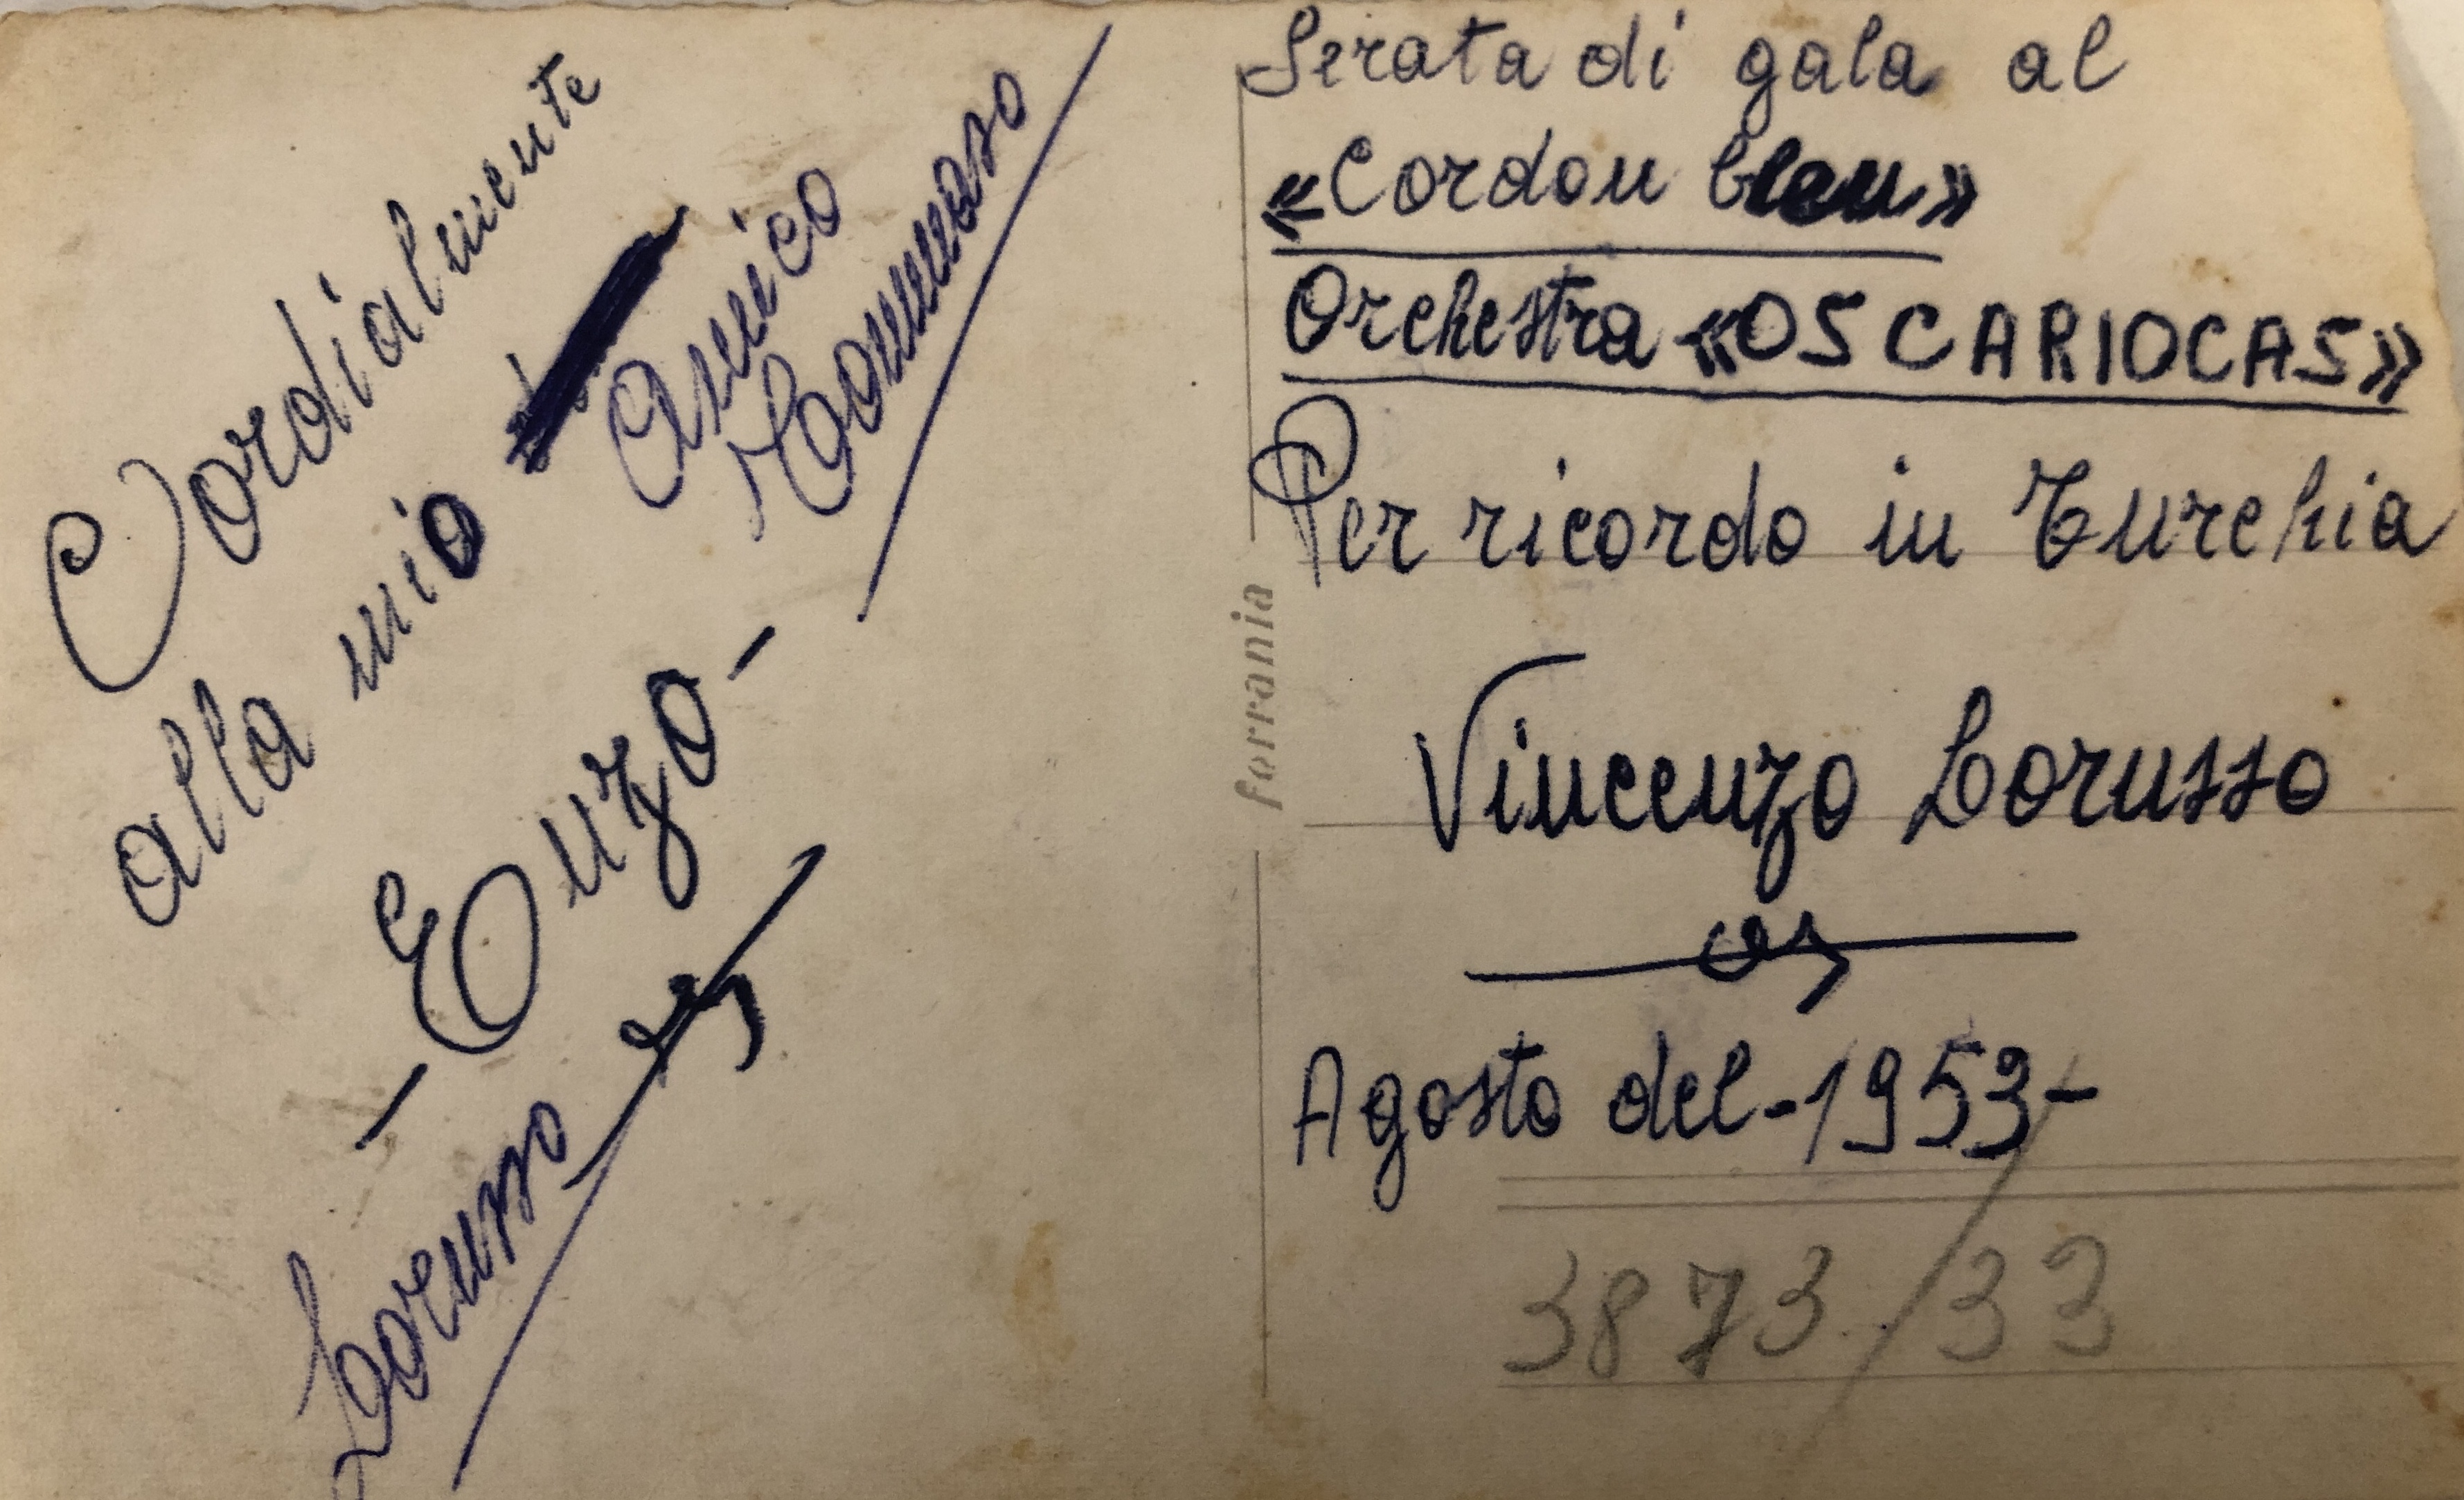 Cordialmente
alla mio amico
Tommaso
- Enzo -
Lorusso
Serata di gala al
«Cordon bleu»
Orchestra «OS CARIOCAS»
Per ricordo in Turchia
Vincenzo Lorusso
Agosto del - 1953 -
3873/33
ferrania